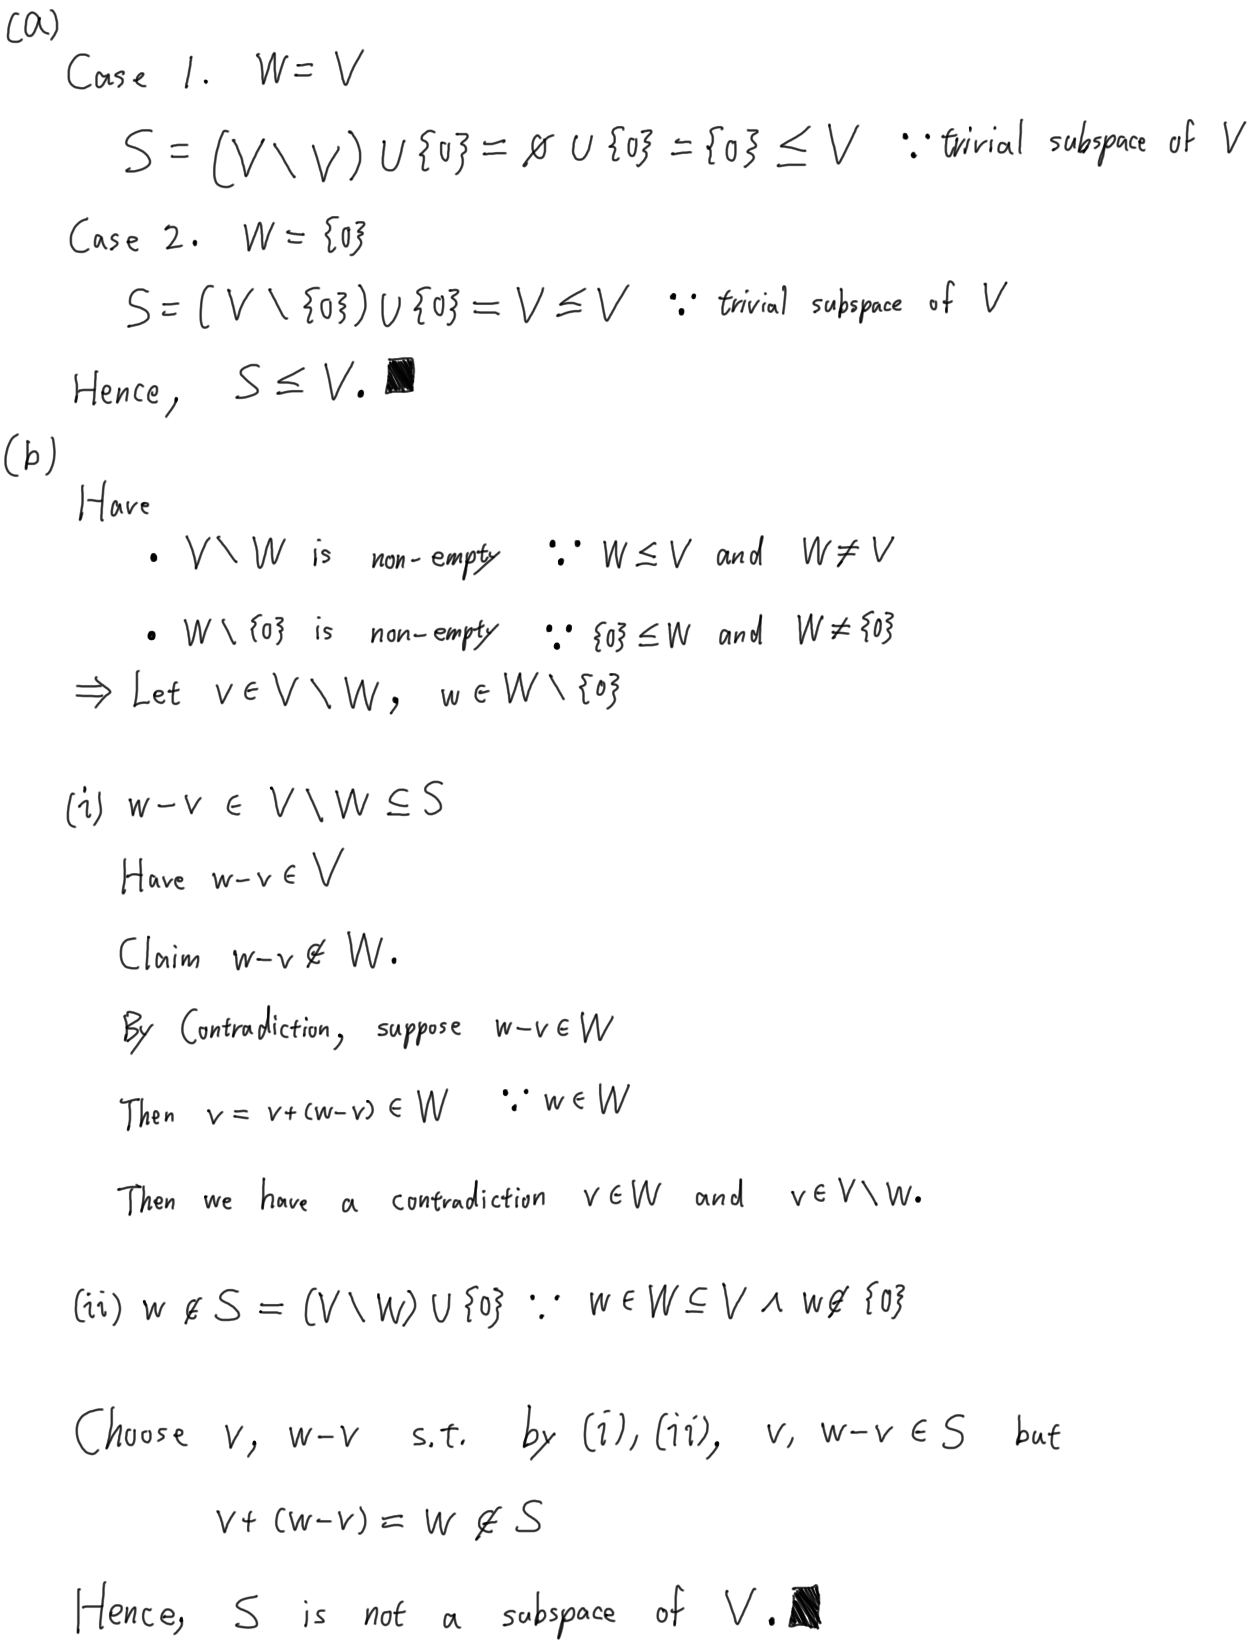 (a)
Case 1. W = V
S = (V \ V) ∪ {0} = ∅ ∪ {0} = {0} ≤ V ∵ trivial subspace of V
Case 2. W = {0}
S = (V \ {0}) ∪ {0} = V ≤ V ∵ trivial subspace of V
Hence, S ≤ V. ■
(b)
Have
• V \ W is non-empty ∵ W ≤ V and W ≠ V
• W \ {0} is non-empty ∵ {0} ≤ W and W ≠ {0}
⇒ Let v ∈ V \ W, w ∈ W \ {0}
(i) w-v ∈ V \ W ⊆ S
Have w-v ∈ V
Claim w-v ∉ W.
By Contradiction, suppose w-v ∈ W
Then v = v+(w-v) ∈ W ∵ w ∈ W
Then we have a contradiction v ∈ W and v ∈ V \ W.
(ii) w ∉ S = (V \ W) ∪ {0} ∵ w ∈ W ⊆ V ∧ w ∉ {0}
Choose v, w-v s.t. by (i), (ii), v, w-v ∈ S but
v + (w-v) = w ∉ S
Hence, S is not a subspace of V. ■